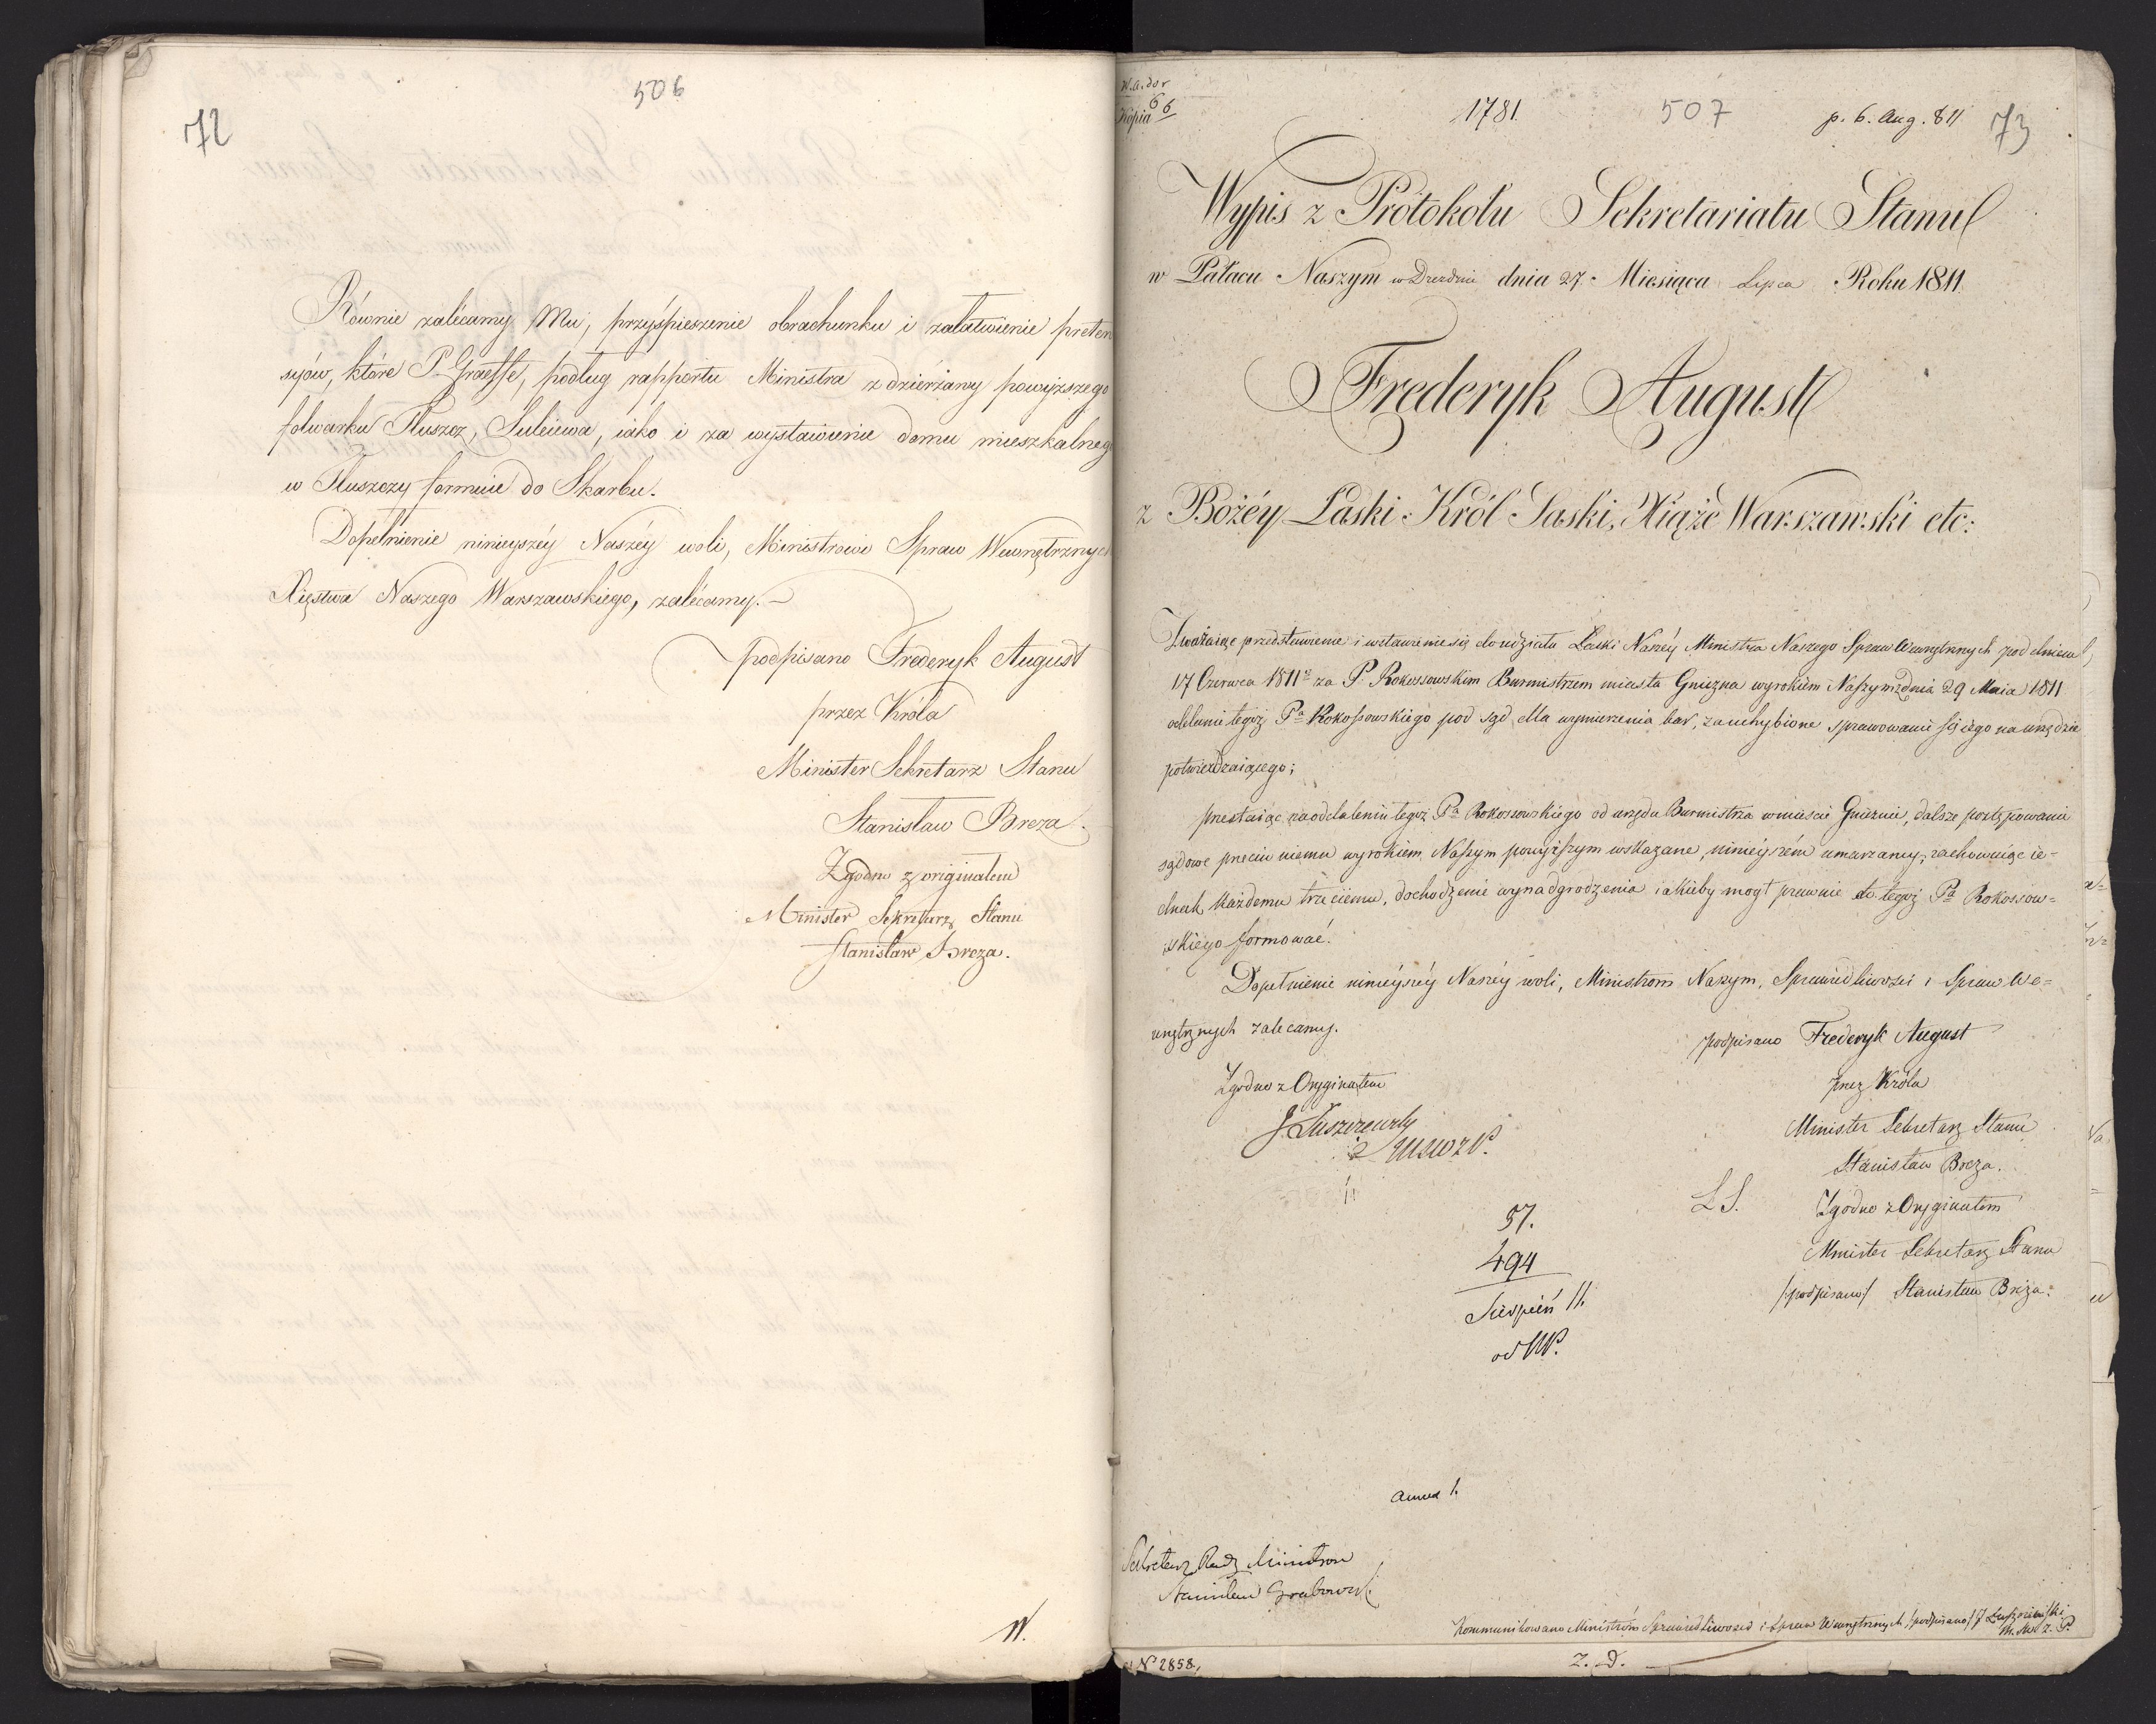 506
72
Równie zalécamy Mu, przyśpieszenie obrachunku i załatwienie preten
syów, które P. Graeffe, podług rapportu Ministra z dzierżawy powyższego
folwarku Tłuszcz, Suleiewa, iako i za wystawienie domu mieszkalneg
w Tłuszczy formuie do Skarbu.
Dopełnienie ninieyszéy Naszéy woli, Ministrowi Spraw Wewnętrznych
Xięstwa Naszego Warszawskiego, zalécamy.
podpisano Frederyk August
przez Króla
Minister Sekretarz Stanu
Stanisław Breza.
Zgodno z originałem
Minister Sekretarz Stanu
Stanisław Breza.
W.
Kopia 66
1781.
507
p. 6. Aug. 811
73
Wypis z Protokołu Sekretariatu Stanu
w Pałacu Naszym w Dreźnie dnia 27. Miesiąca Lipca Roku 1811
Frederyk August
z Bożéy Łaski Król Saski, Xiążę Warszawski etc:
Zważaiąc przedstawienie i wstawienie się do udziału Łaski Naszéy Ministra Naszego Spraw Wewnętrznych pod dniem
17 Czerwca 1811 za P. Rokossowskim Burmistrzem miasta Gniezna wyrokiem Naszym z dnia 29 Maia 1811
oddanie tegoż Pa Rokossowskiego pod sąd dla wymierzenia kar, za uchybione sprawowanie się iego na urzędzie
potwierdzaiącego;
przestaiąc na oddaleniu tegoż Pa Rokossowskiego od urzędu Burmistrza w mieście Gnieznie, dalsze postępowanie
sądowe przeciw niemu wyrokiem Naszym powyższym wskazane, ninieyszém umarzamy, zachowuiąc ie=
dnak każdemu trzeciemu, dochodzenie wynadgrodzenia iakieby mógł prawnie do tegoż Pa Rokossow=
skiego formować.
Dopełnienie ninieyszéy Naszéy woli, Ministrom Naszym, Sprawiedliwości i Spraw We=
wnętrznych zalecamy.
podpisano Frederyk August
Zgodno z Oryginałem
przez Króla
J. Łuszczewski
Minister Sekretarz Stanu
Stanisław Breza.
L S.
Zgodno z Oryginałem
57.
494
Minister Sekretarz Stanu
Sierpień 11.
/podpisano/ Stanisław Breza.
od
Sekretarz Rady Ministrow
Stanisław Grabowski
Kommunikowano Ministróm Sprawiedliwości i Spraw Wewnętrznych /podpisano/ J Łuszczewski
M. S. W. z. P.
N 2858.
z. d.